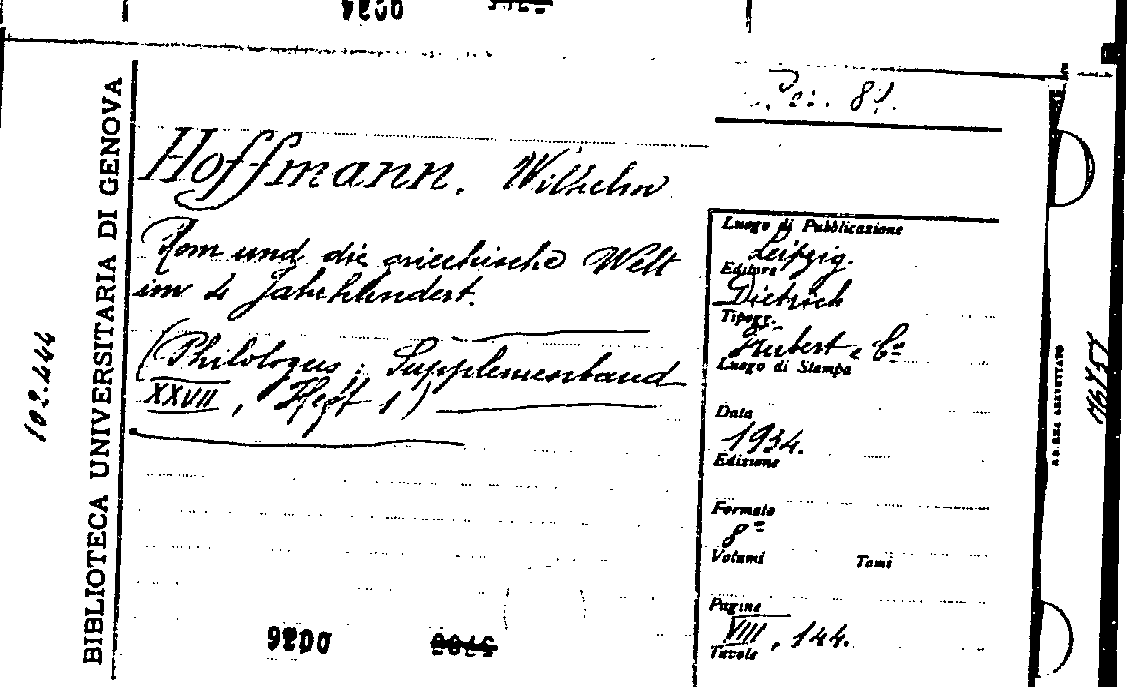 0024
Per. 81.
Hoffmann, Wilhelm
Rom und die griechische Welt
im 4 Jahrhundert.
(Philologus, Supplementband
XXVII, Heft 1)
BIBLIOTECA UNIVERSITARIA DI GENOVA
102.444
Luogo di Pubblicazione
Leipzig.
Editore
Dietrich
Tipogr.
Hubert e Cº
Luogo di Stampa
Data
1934.
Edizione
Formato
8º
Volumi Tomi
Pagine
VIII, 144.
Tavole
0026